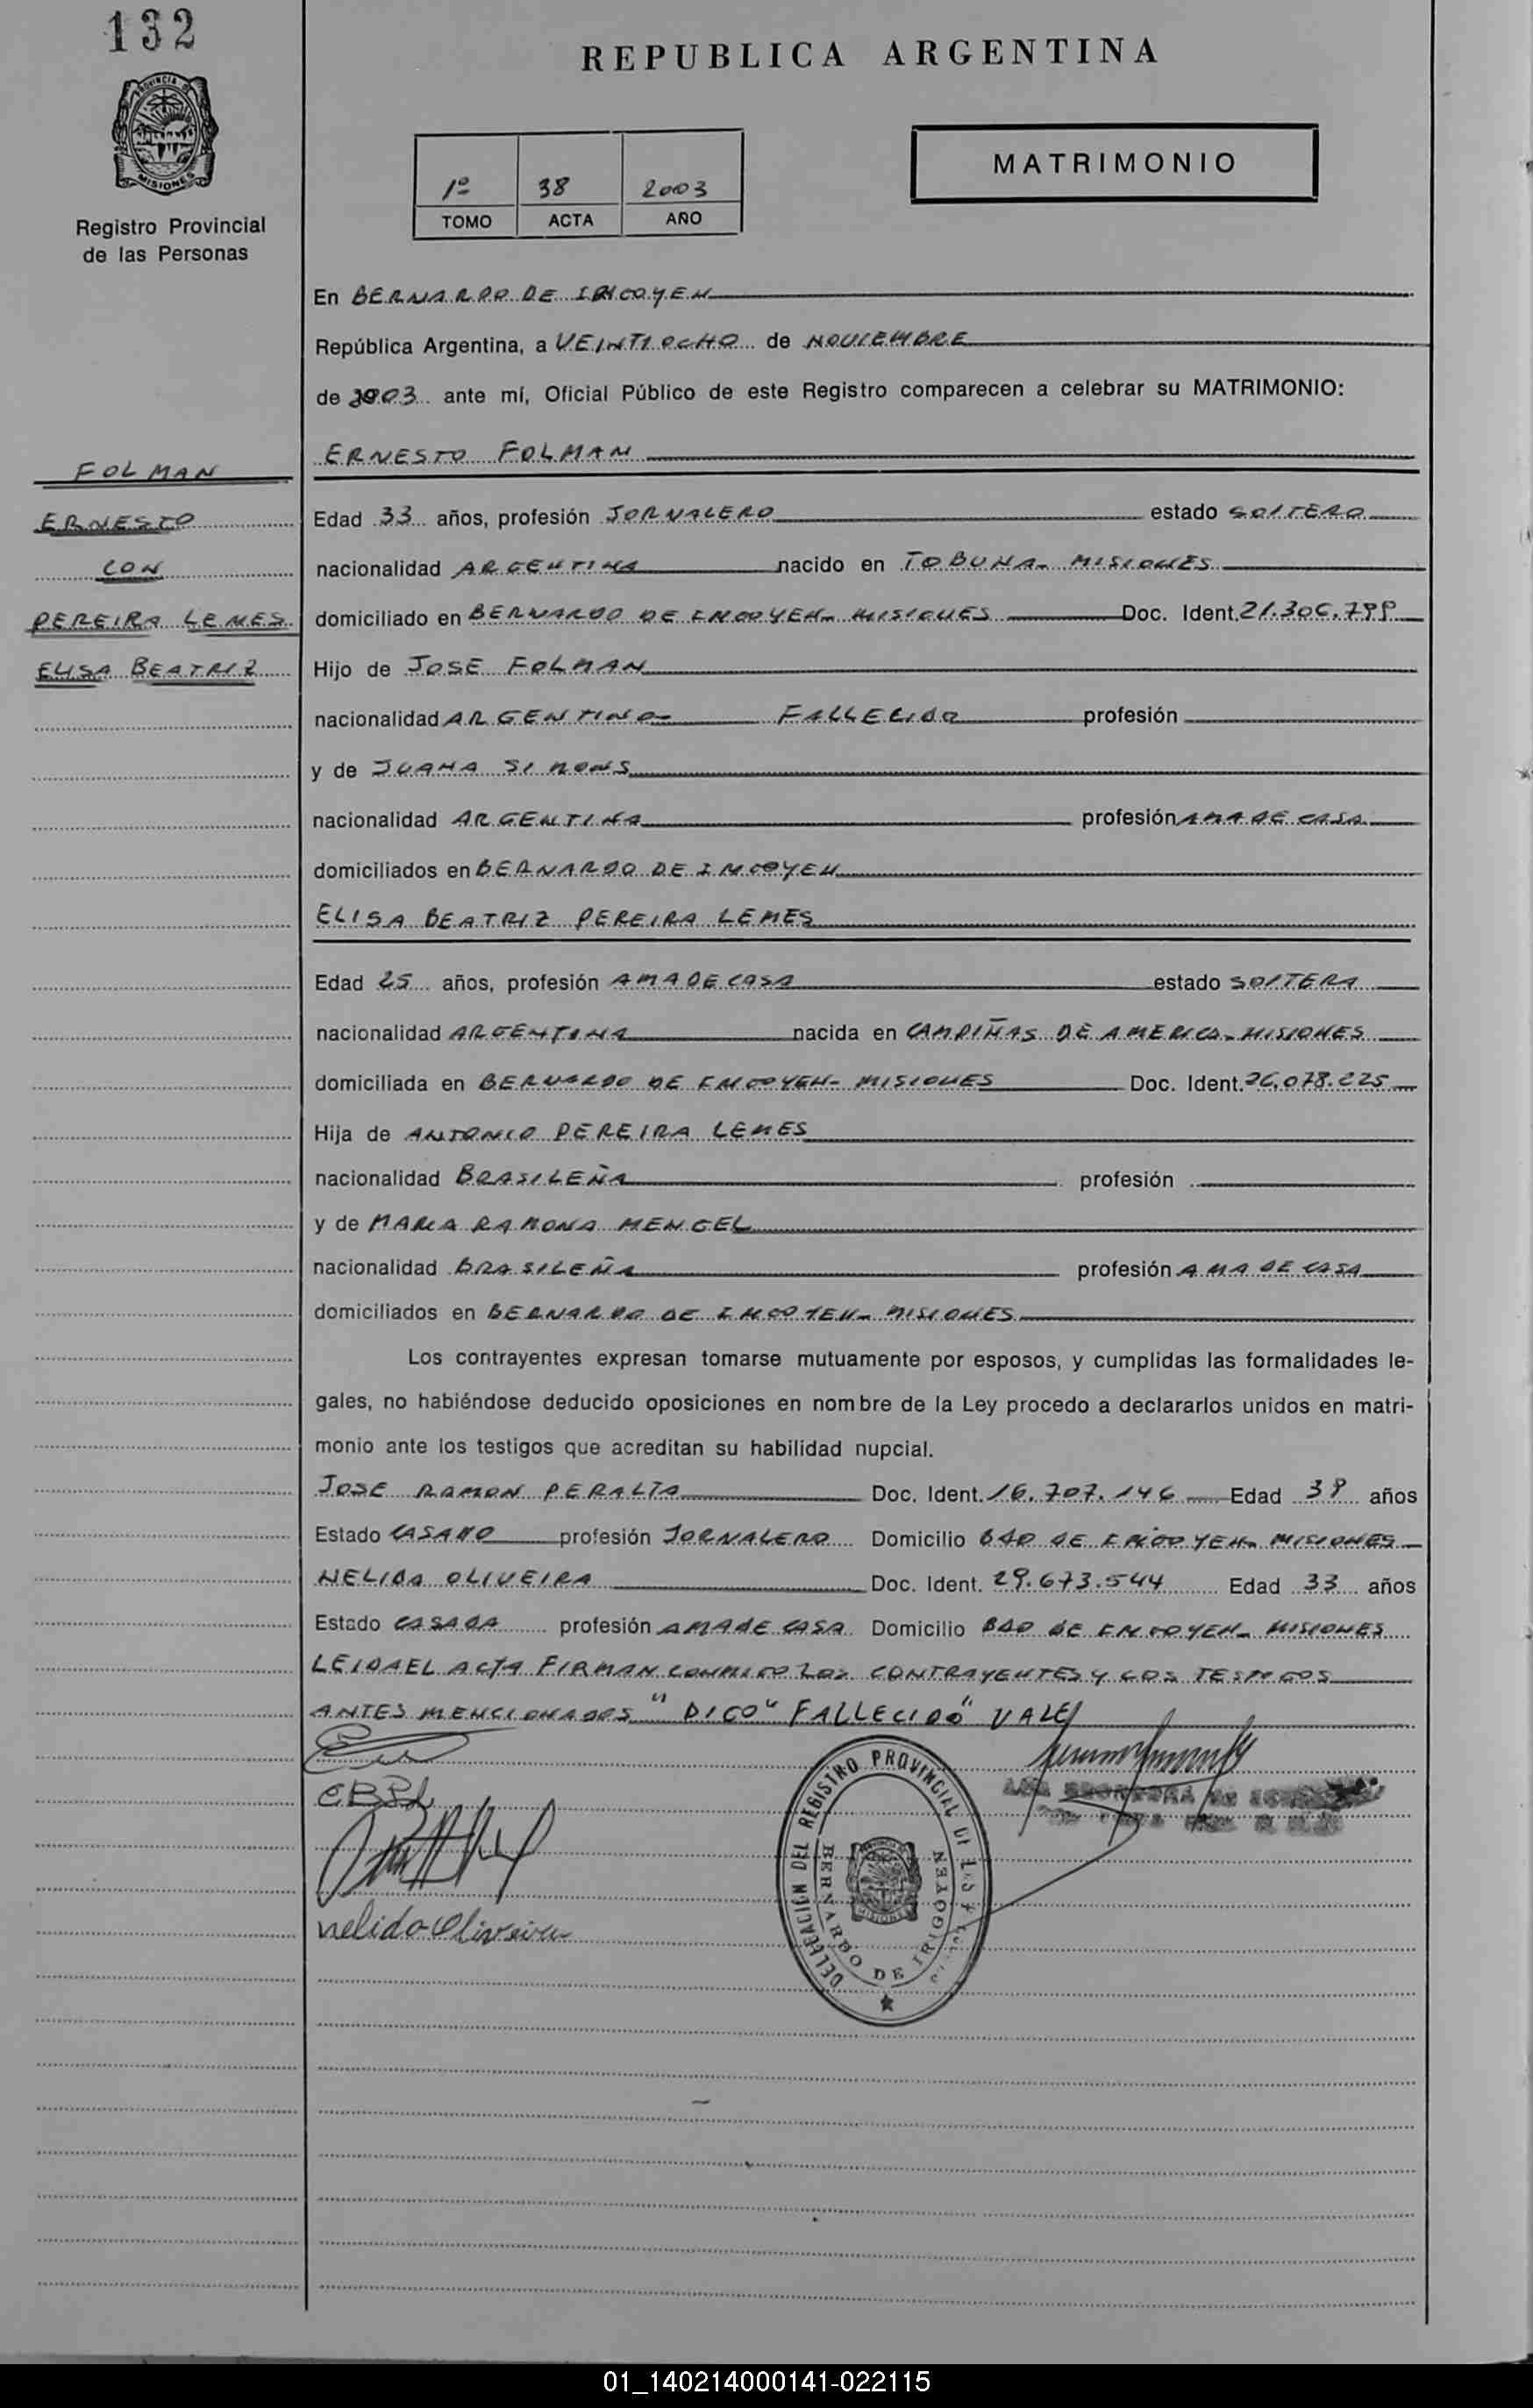 132
REPUBLICA ARGENTINA
MISIONES
Registro Provincial
de las Personas
1º 38 2003
TOMO ACTA AÑO
MATRIMONIO
En BERNARDO DE IRIGOYEN
República Argentina, a VEINTIOCHO de NOVIEMBRE
de 2003 ante mí, Oficial Público de este Registro comparecen a celebrar su MATRIMONIO:
FOLMAN
ERNESTO
CON
PEREIRA LEMES
ELISA BEATRIZ
ERNESTO FOLMAN
Edad 33 años, profesión JORNALERO estado SOLTERO
nacionalidad ARGENTINA nacido en TOBUNA- MISIONES
domiciliado en BERNARDO DE IRIGOYEN- MISIONES Doc. Ident. 21.306.799
Hijo de JOSE FOLMAN
nacionalidad ARGENTINO- FALLECIDO profesión
y de JUANA SIMONS
nacionalidad ARGENTINA profesión AMA DE CASA
domiciliados en BERNARDO DE IRIGOYEN
ELISA BEATRIZ PEREIRA LEMES
Edad 25 años, profesión AMA DE CASA estado SOLTERA
nacionalidad ARGENTINA nacida en CAMPIÑAS DE AMERICA- MISIONES
domiciliada en BERNARDO DE IRIGOYEN- MISIONES Doc. Ident. 26.078.225
Hija de ANTONIO PEREIRA LEMES
nacionalidad BRASILEÑA profesión
y de MARIA RAMONA MENGEL
nacionalidad BRASILEÑA profesión AMA DE CASA
domiciliados en BERNARDO DE IRIGOYEN- MISIONES
Los contrayentes expresan tomarse mutuamente por esposos, y cumplidas las formalidades le-
gales, no habiéndose deducido oposiciones en nombre de la Ley procedo a declararlos unidos en matri-
monio ante los testigos que acreditan su habilidad nupcial.
JOSE RAMON PERALTA Doc. Ident. 16.707.146 Edad 39 años
Estado CASADO profesión JORNALERO Domicilio BDO DE IRIGOYEN- MISIONES
NELIDA OLIVEIRA Doc. Ident. 29.673.544 Edad 33 años
Estado CASADA profesión AMA DE CASA Domicilio BDO DE IRIGOYEN- MISIONES
LEIDA EL ACTA FIRMAN CONMIGO LOS CONTRAYENTES Y LOS TESTIGOS
ANTES MENCIONADOS "DIGO" FALLECIDO" VALE
EBPL
nelida Oliveira
DELEGACIÓN DEL REGISTRO PROVINCIAL DE LAS
BERNARDO DE IRIGOYEN
MISIONES
01_140214000141-022115